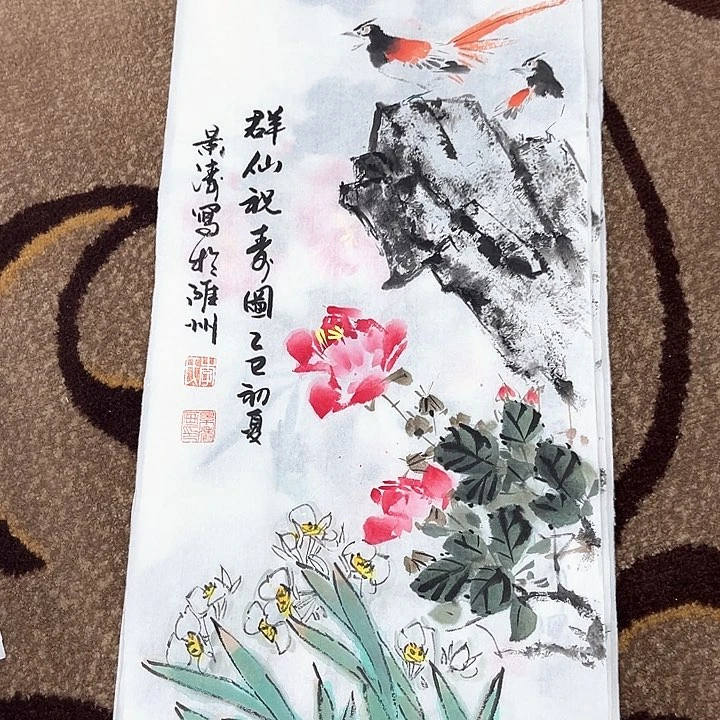 群仙祝寿圖乙巳初夏
景濤寫於雒州